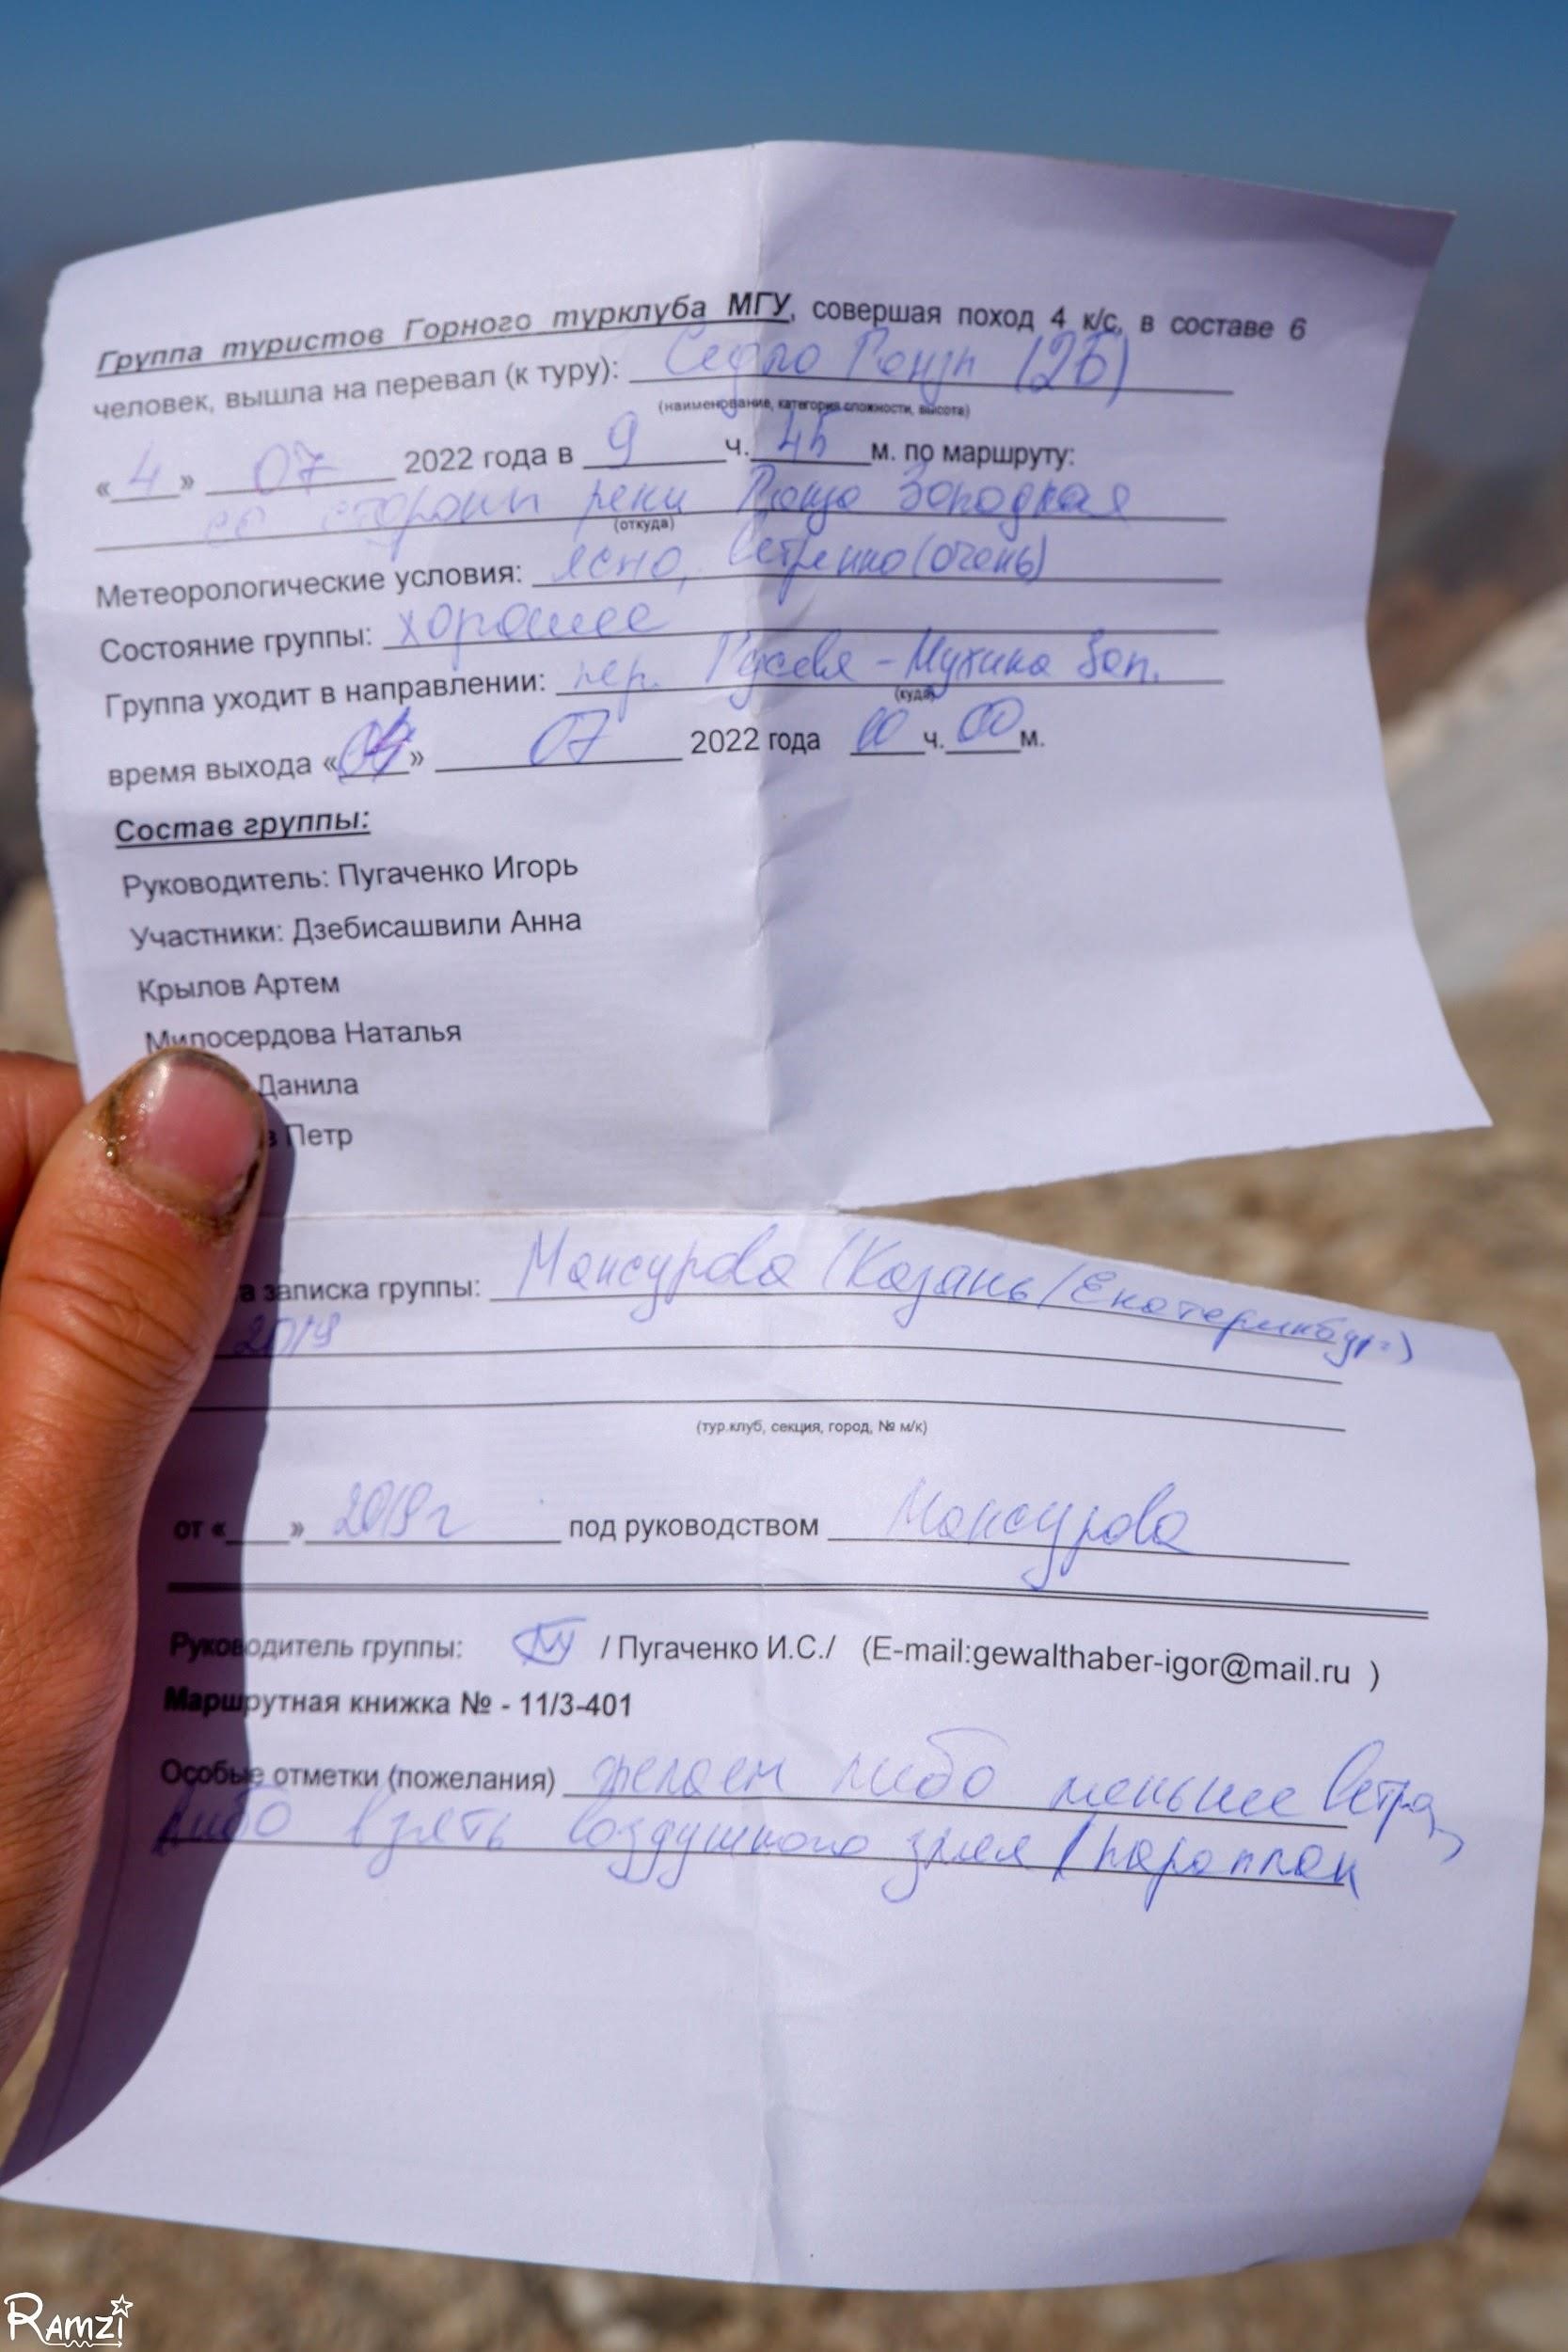 Группа туристов Горного турклуба МГУ, совершая поход 4 к/с, в составе 6
человек, вышла на перевал (к туру): Седло Гонзп (2Б)
(наименование, категория сложности, высота)
«4» 07 2022 года в 9 ч. 45 м. по маршруту:
со стороны реки Западная
(откуда)
Метеорологические условия: ясно, ветренно (очень)
Состояние группы: хорошее
Группа уходит в направлении: пер. Гусева - Мухина Зап.
(куда)
время выхода «04» 07 2022 года 10 ч. 00 м.
Состав группы:
Руководитель: Пугаченко Игорь
Участники: Дзебисашвили Анна
Крылов Артем
Милосердова Наталья
Данила
в Петр
а записка группы: Мансурова (Казань/Екатеринбург)
2019
(тур.клуб, секция, город, № м/к)
от « » 2019г под руководством Мансурова
Руководитель группы: / Пугаченко И.С./ (E-mail:gewalthaber-igor@mail.ru )
Маршрутная книжка № - 11/3-401
Особые отметки (пожелания) желаем либо меньше ветра,
либо взять воздушного змея / параплан
Ramzi